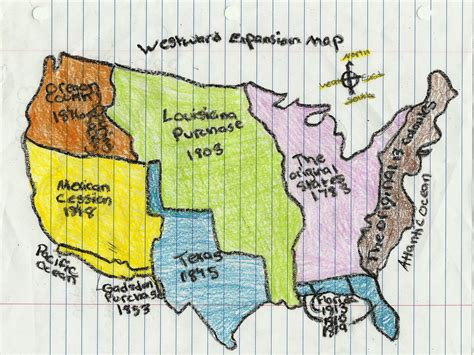 Westward Expansion Map
North
East
South
Oregon
Country
1846
Louisiana
Purchase
1803
The
original
States
1783
The original 13 colonies
Atlantic Ocean
Mexican
Cession
1848
Pacific
Ocean
Gadsden
Purchase
1853
Texas
1845
Florida
1813
1810
1819